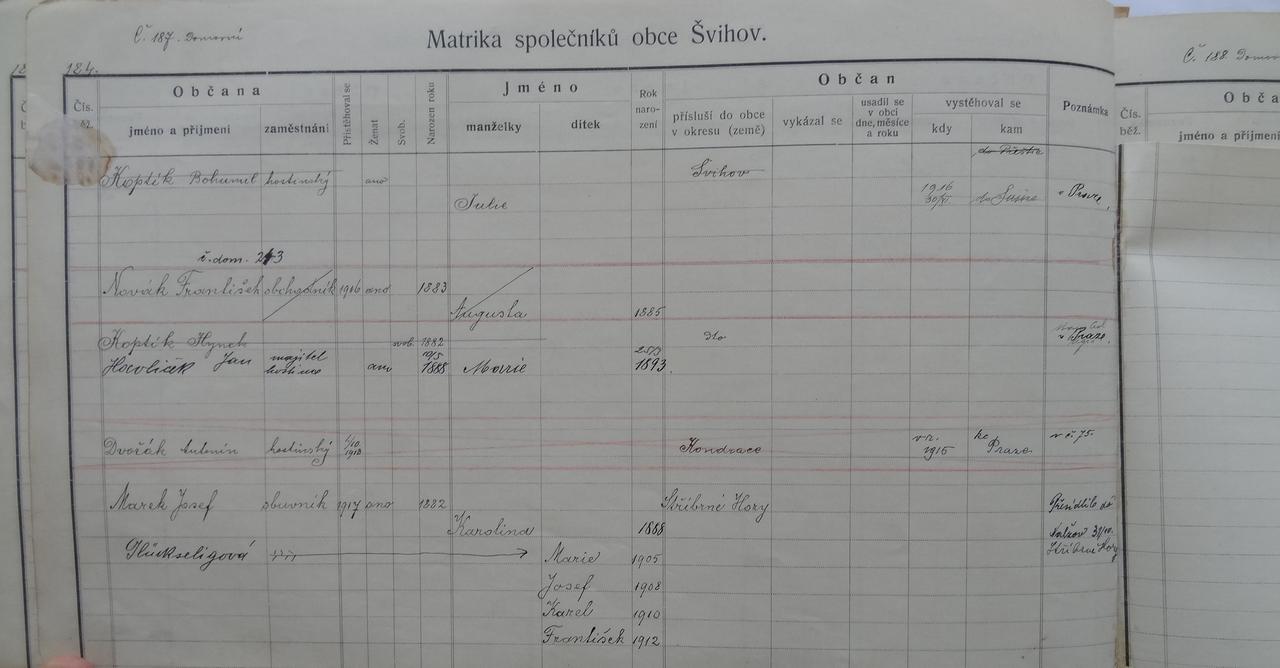 Č. 187. Domovní
Matrika společníků obce Švihov.
Č. 188. Domov
184.
Občana
Jméno
Občan
Čís. běž.
jméno a přijmení
zaměstnání
Přistěhoval se
Ženat
Svob.
Narozen roku
manželky
dítek
Rok narození
přísluší do obce v okresu (země)
vykázal se
usadil se v obci dne, měsíce a roku
vystěhoval se
kdy
kam
Poznámka
Čís. běž.
Obča
jméno a přijmení
Koptík Bohumil hostinský ano Švihov
Julie 1916 30/ do Sušice v Praze,
č. dom. 2 3
Novák František obchodník 1916 ano 1883
Augusta 1885
Koptík Hynek svob. 1882 dto v Praze
Havlíček Jan majitel hostince ano 19/5 1888 Marie 25/3 1893
Dvořák Antonín hostinský 1/10 1913 Kondrace v r. 1915 ku Praze v č. 75.
Marek Josef obuvník 1917 ano 1882 Stříbrné Hory
Karolina 1888 Nalžov
Glückseligová Marie 1905 Stříbrné Hory
Josef 1908
Karel 1910
František 1912